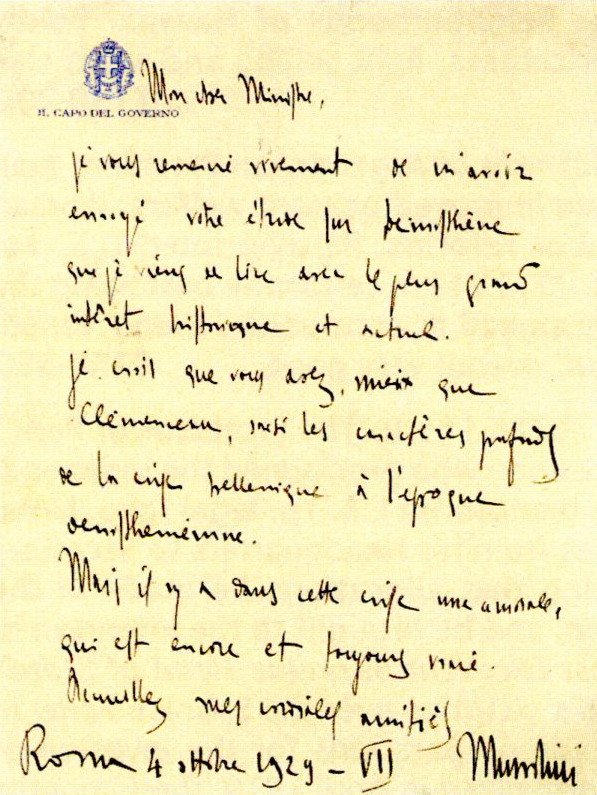 Mon cher Ministre,
IL CAPO DEL GOVERNO
je vous remercie vivement de m'avoir
envoyé votre étude sur Demosthène
que je viens de lire avec le plus grand
intêret historique et actuel.
Je crois que vous avez, mieux que
Clémenceau, les caractères profonds
de la crise hellenique à l'époque
demosthenienne.
Mais il y a dans cette crise une morale,
qui est encore et toujours vraie.
Accueillez mes cordiales amitiés
Roma 4 ottobre 1929 - VII Mussolini